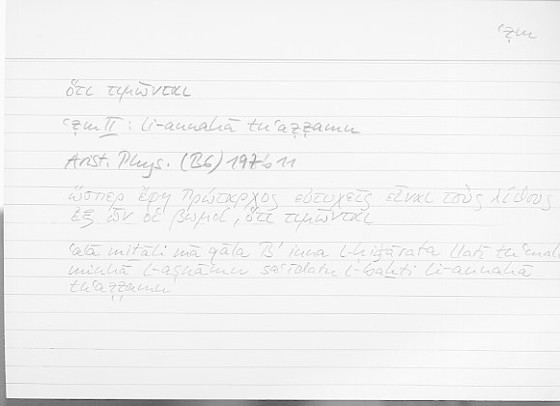 ʿẓm
ὅτι τιμῶνται
ʿẓm II : li-annahā tuʿaẓẓamu
Arist. Phys. (B6) 197b11
ὥσπερ ἔφη Πρώταρχος εὐτυχεῖς εἶναι τοὺς λίθους
ἐξ ὧν οἱ βωμοί, ὅτι τιμῶνται
ʿalā miṯāli mā qāla B' inna l-ḥiǧārata llatī tuʿmalu
minhā l-aṣnāmu saʿīdatu l-baḫti li-annahā
tuʿaẓẓamu